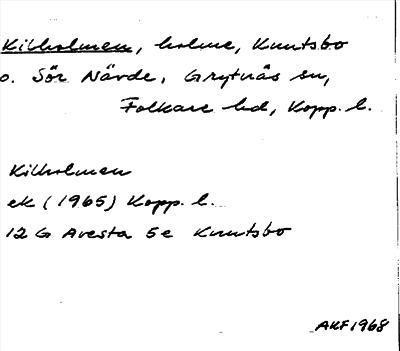 Kilholmen, holme, Knutsbo
o. Sör Nävde, Grytnäs sn,
Folkare hd, Kopp. l.
Kilholmen
ek (1965) Kopp. l.
12 G Avesta 5e Knutsbo
AKF 1968